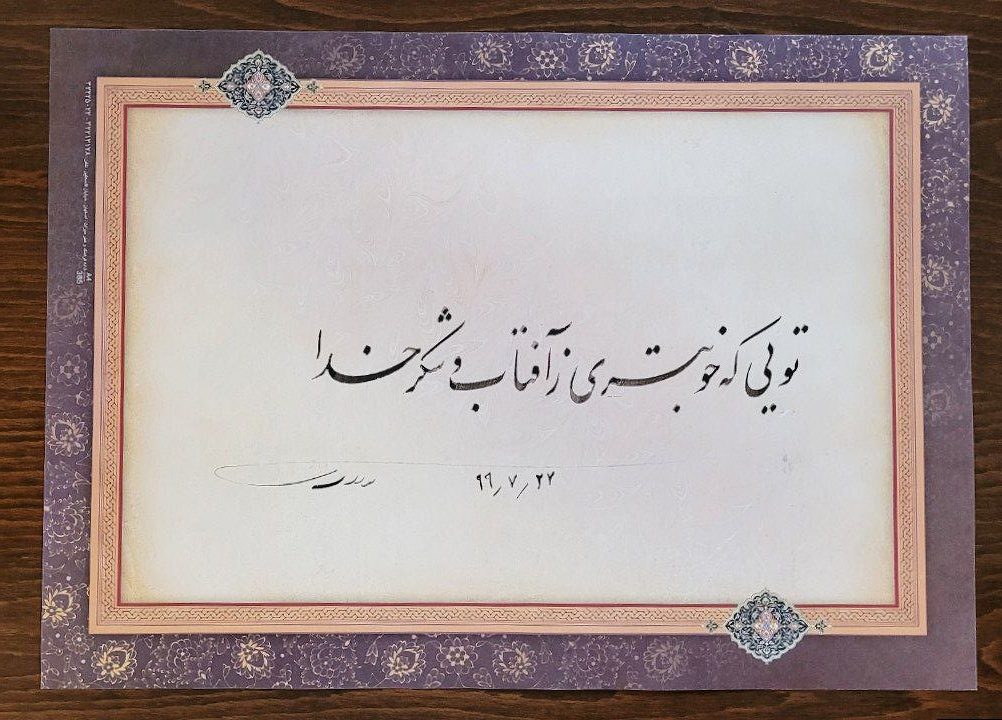 تویی که خوبتری ز آفتاب و شکر خدا
۹۹٫۷٫۲۲
A4
385